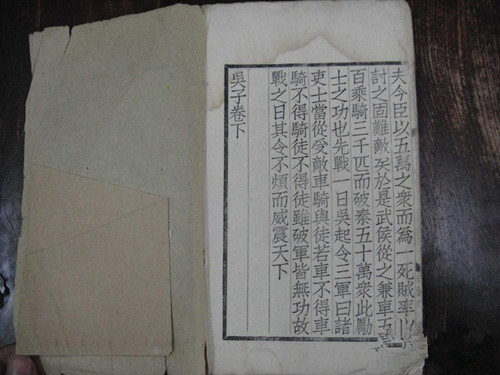 夫今臣以五萬之衆而爲一死賊率以
討之固難敵矣於是武侯從之兼車五
百乘騎三千匹而破秦五十萬衆此勵
士之功也先戰一日吳起令三軍曰諸
吏士當從受敵車騎與徒若車不得車
騎不得騎徒不得徒雖破軍皆無功故
戰之日其令不煩而威震天下
吳子卷下